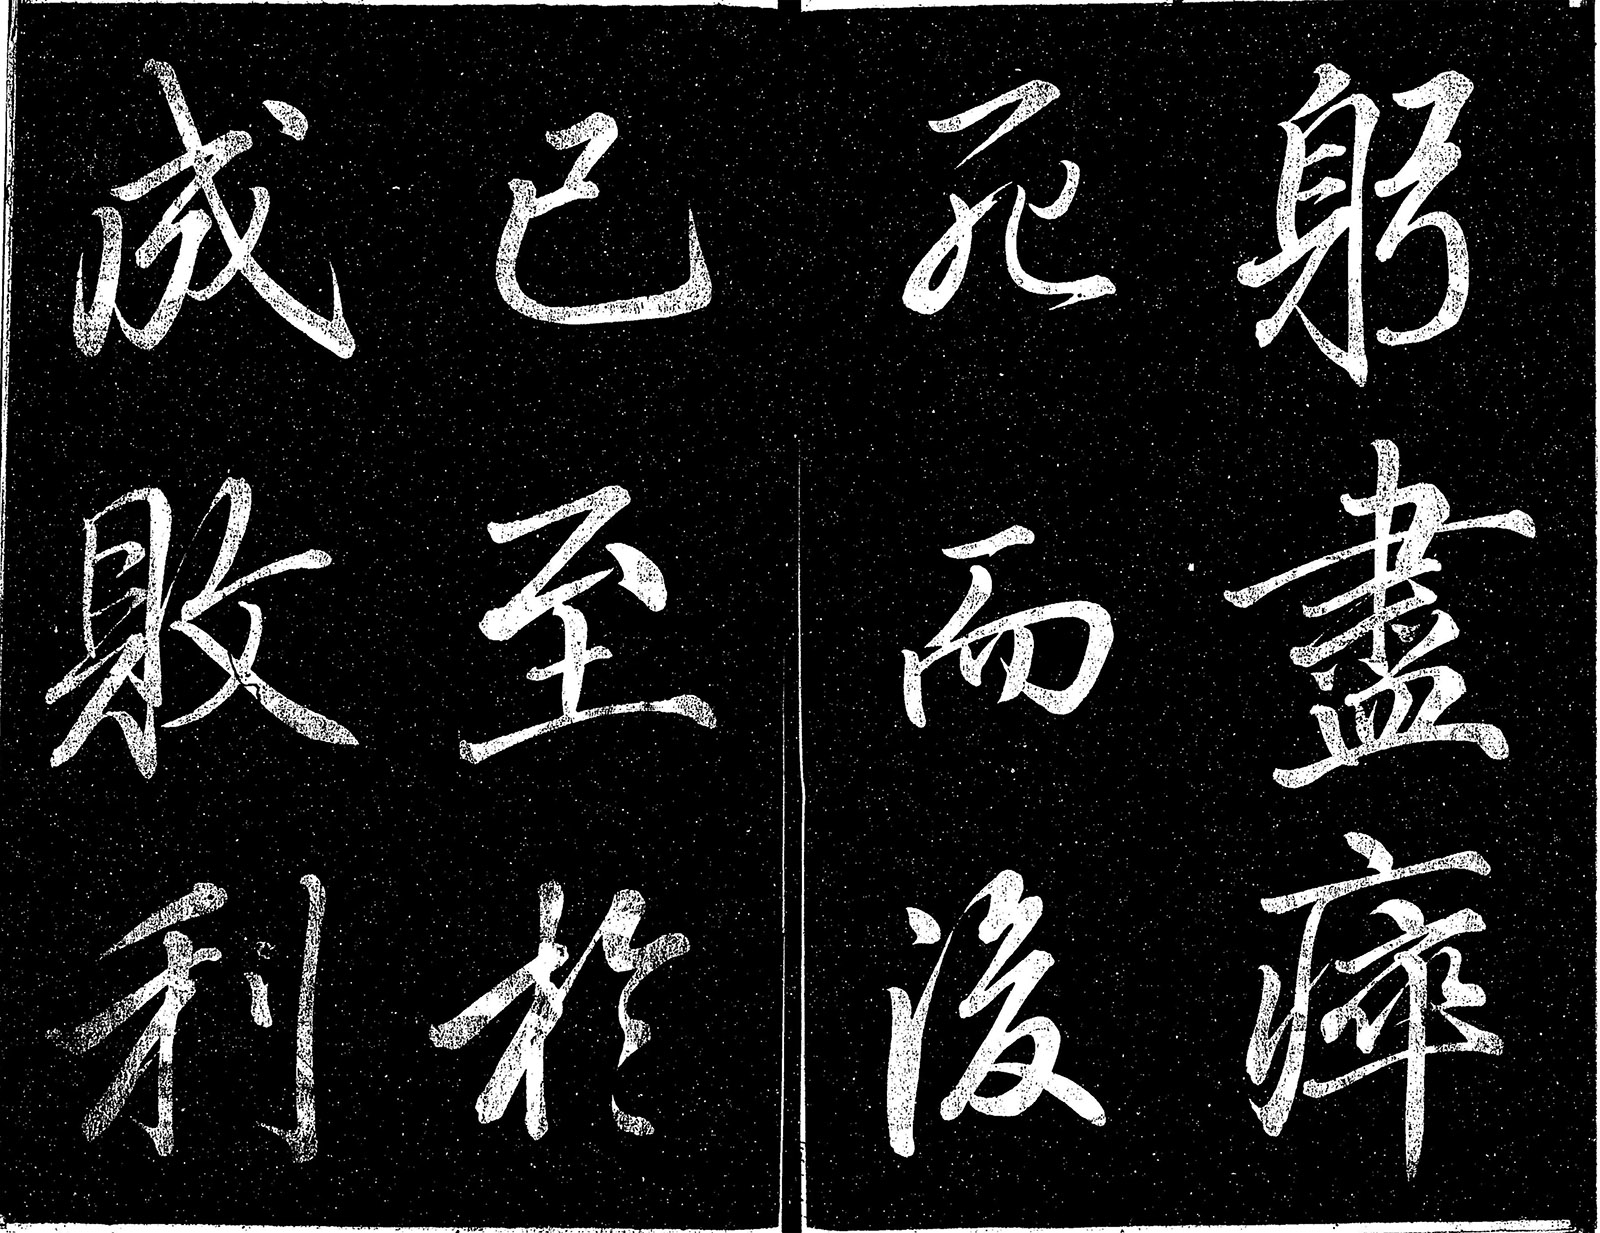 躬盡瘁
死而後
已至於
成敗利